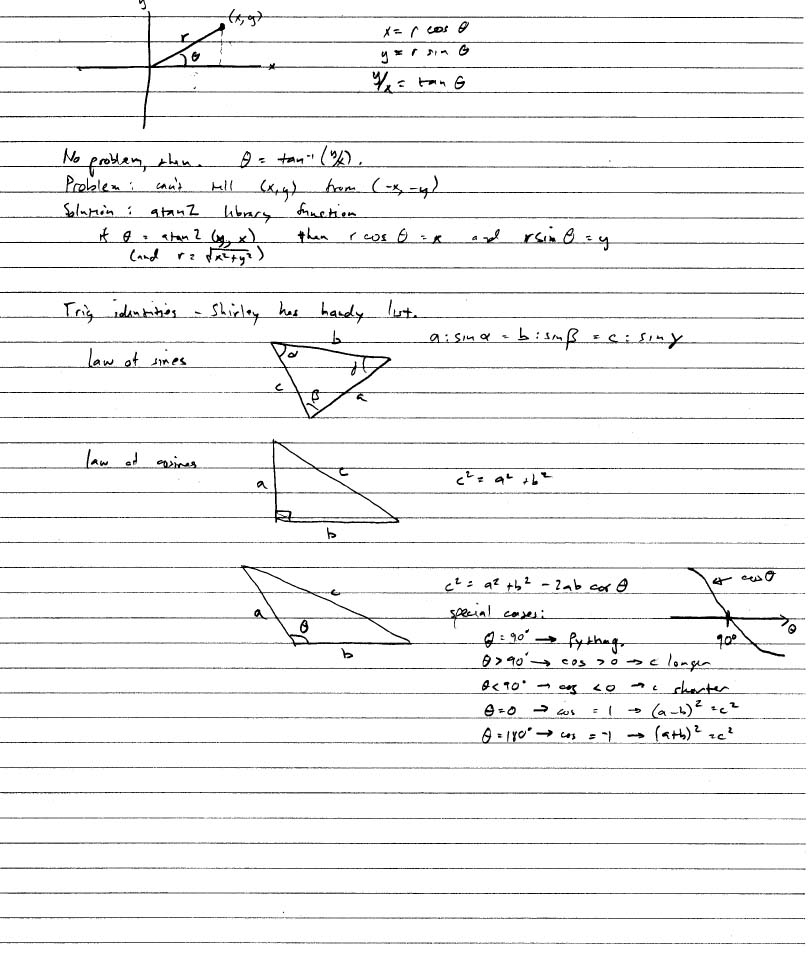 y
(x, y)
r
θ
x
x = r cos θ
y = r sin θ
y/x = tan θ
No problem, then. θ = tan⁻¹ (y/x).
Problem: can't tell (x, y) from (-x, -y)
Solution: atan2 library function
if θ = atan2 (y, x) then r cos θ = x and r sin θ = y
(and r = √x²+y²)
Trig identities - Shirley has handy list.
law of sines
b
α
γ
c
β
a
a : sin α = b : sin β = c : sin γ
law of cosines
a
c
b
c² = a² + b²
a
c
θ
b
c² = a² + b² - 2ab cos θ
special cases:
θ = 90° → Pythag.
θ > 90° → cos > 0 → c longer
θ < 90° → cos < 0 → c shorter
θ = 0 → cos = 1 → (a-b)² = c²
θ = 180° → cos = -1 → (a+b)² = c²
← cos θ
θ
90°